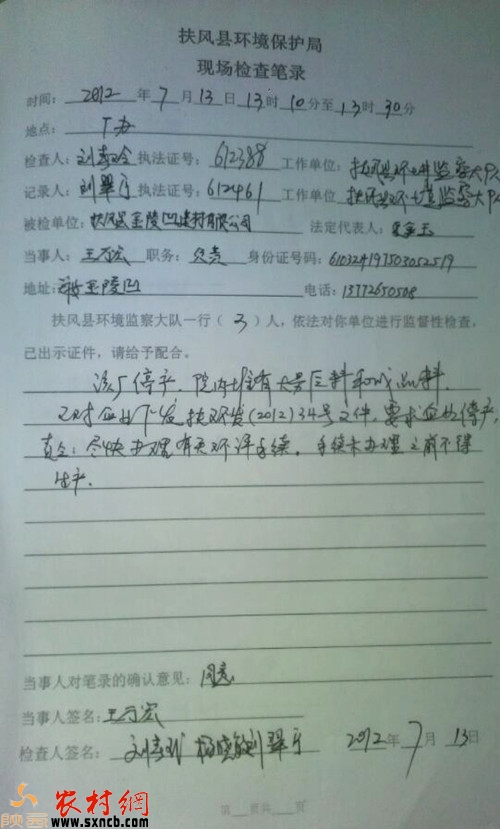 扶风县环境保护局
现场检查笔录
时间: 2012 年 7 月 13 日 13时 10分至 13时 30分
地点: 厂办
检查人: 刘 执法证号: 612388 工作单位: 扶风县环境监察大队
记录人: 刘翠宁 执法证号: 612461 工作单位 扶风县环境监察大队
被检单位: 扶风县金陵凹建材有限公司 法定代表人: 玉
当事人: 王万宏 职务: 负责 身份证号码: 610324197503052519
地址: 金陵凹 电话: 13772650508
扶风县环境监察大队一行( 3 )人，依法对你单位进行监督性检查，
已出示证件，请给予配合。
该厂停产，院内堆有大量原料和成品料，
已对企业下发扶环发(2012)34号文件，要求企业停产，
责令：尽快办理有关环评手续。手续未办理之前不得
生产.
当事人对笔录的确认意见: 同意
当事人签名: 王万宏
检查人签名: 刘 杨晓敏 刘翠宁 2012年 7 月 13日
第 页共 页
陕西 农村網
www.sxncb.com